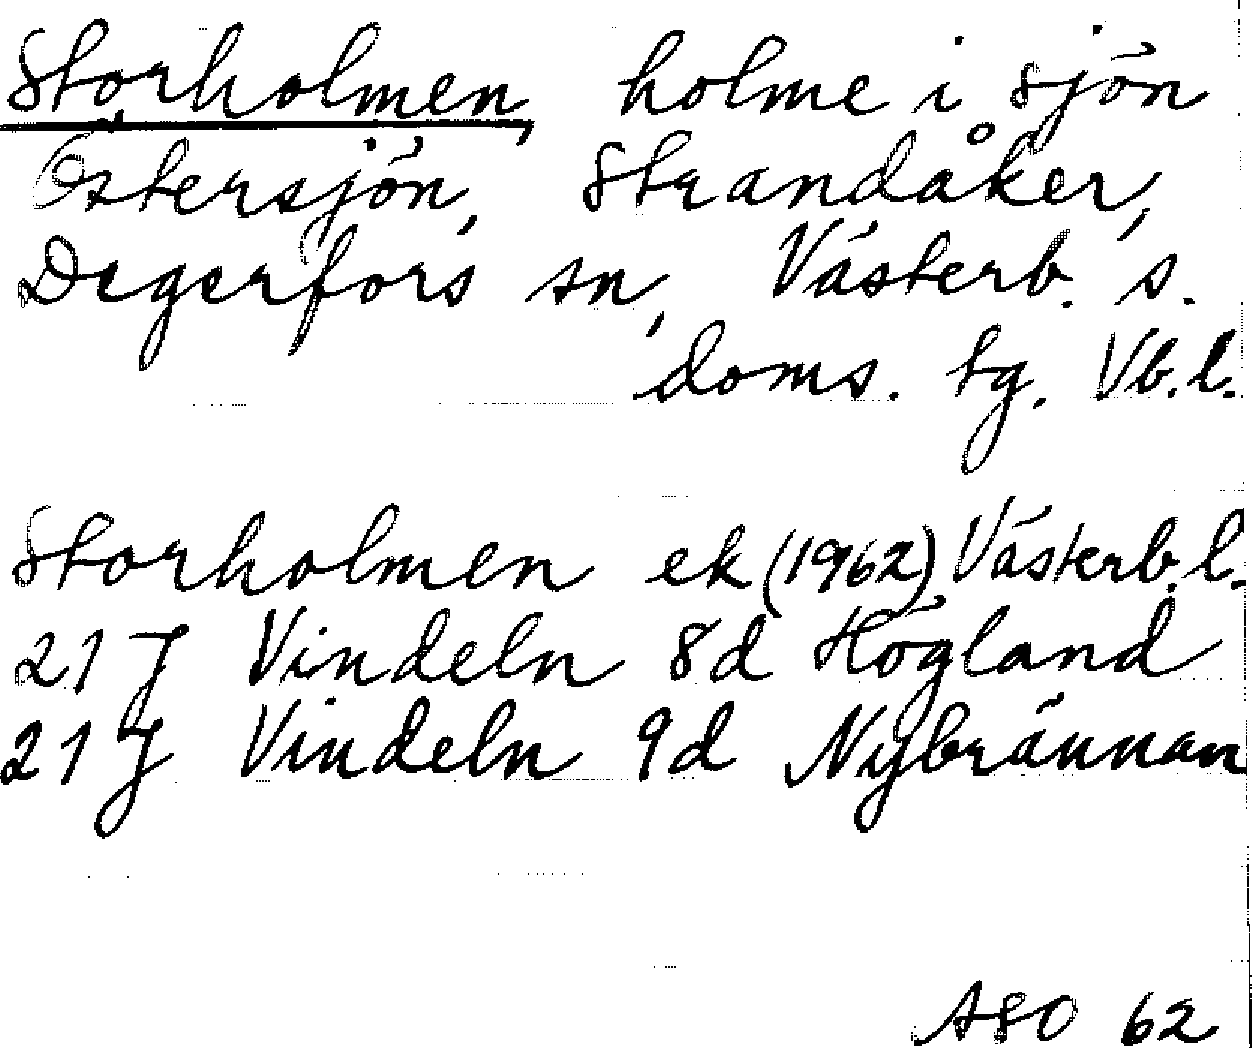 Storholmen, holme i sjön
Östersjön, Strandåker,
Degerfors sn, Västerb. s.
doms. tg. Vb.l.
Storholmen ek (1962) Västerb.l.
21 J Vindeln 8d Högland
21 J Vindeln 9d Nybrännan
ASO 62